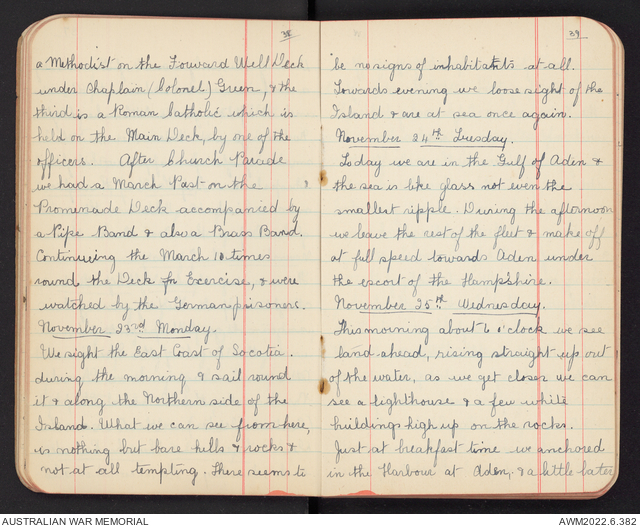 38
a Methodist on the Forward Well Deck
under Chaplain (Colonel) Green, & the
third is a Roman Catholic which is
held on the Main Deck, by one of the
officers. After Church Parade
we had a March Past on the
Promenade Deck accompanied by
a Pipe Band & also a Brass Band.
Continuing the March 10 times
round the Deck for Exercise, & were
watched by the German prisoners.
November 23rd Monday.
We sight the East Coast of Socotia.
during the morning & sail round
it & along the Northern side of the
Island. What we can see from here,
is nothing but bare hills & rocks &
not at all tempting. There seems to
39
be no signs of inhabitants at all.
Towards evening we loose sight of the
Island & are at sea once again.
November 24th Tuesday.
Today we are in the Gulf of Aden &
the sea is like glass not even the
smallest ripple. During the afternoon
we leave the rest of the fleet & make off
at full speed towards Aden under
the escort of the Hampshire.
November 25th Wednesday.
This morning about 6 o'clock we see
land ahead, rising straight up out
of the water, as we get closer we can
see a lighthouse & a few white
buildings high up on the rocks.
Just at breakfast time we anchored
in the Harbour at Aden, & a little later
AUSTRALIAN WAR MEMORIAL
AWM2022.6.382